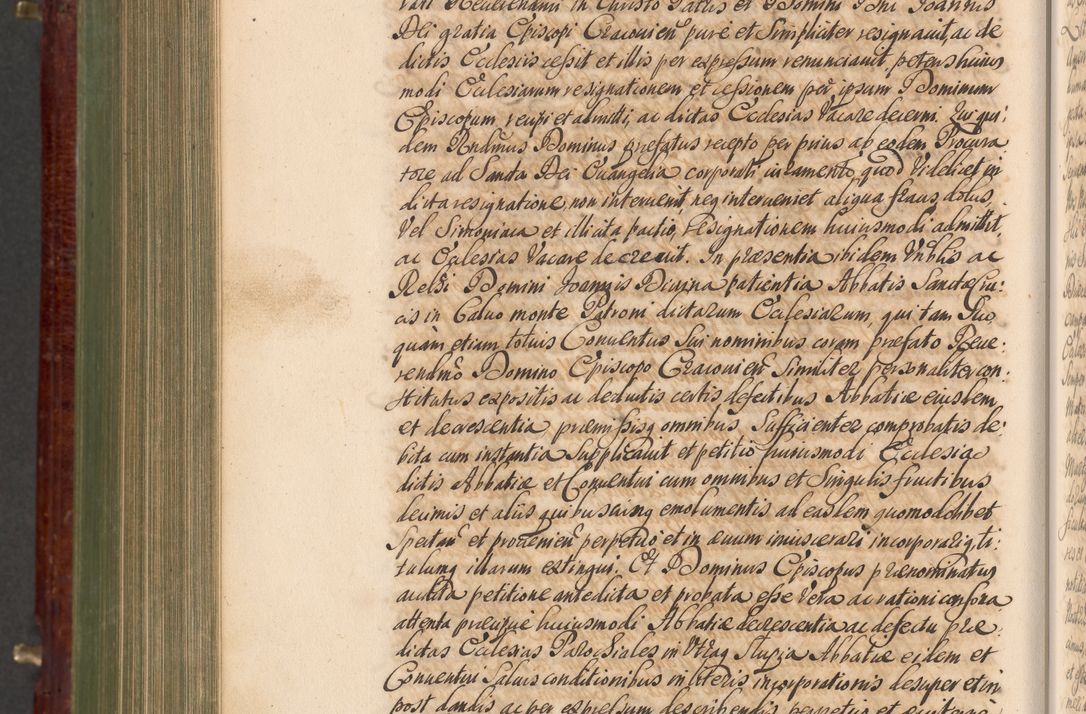 Reuerendum in Christo Patris et Domini Dni Joannis
Dei gratia Episcopi Cracouien̄ pure et Simpliciter resignauit, ac de
dictis Ecclesijs cessit et illis per expressum renunciauit, petens huius
modi Ecclesiarum resignationem et cessionem per ipsum Dominum
Episcopum recipi et admitti, ac dictas Ecclesias Vacare decerni. Qui qui:
dem Rndmus Dominus prefatus recepto per prius ab eodem Procura
tore ad Sancta Dei Euangelia corporali iuramento, quod Videlicet in
dicta resignatione, non interuenit, neq interueniet aliqua fraus, dolus,
Vel Simoniaca et illicita pactio, resignationem huiusmodi admittit,
ac Ecclesias Vacare decreuit. In præsentia ibidem Vnblis ac
Relgi Domini Joannis Diuina patientia Abbatis Sanctæ Cru:
cis in Caluo monte Patroni dictarum Ecclesiarum, qui tam Suo,
quàm etiam totius Conuentus Sui nominibus coram præfato Reue:
rendmo Domino Episcopo Cracouien̄ Similiter personaliter con:
stitutus expositis ac deductis certis defectibus Abbatiæ eiusdem,
et decrescentia, præmissisq omnibus, Sufficienter comprobatis de:
bita cum instantia Supplicauit et petitio huiusmodi Ecclesia
dictis Abbatiæ et Conuentui cum omnibus et Singulis fructibus
decimis et alijs quibuscunq emolumentis ad easdem quomodolibet
Spectan̄ et prouenien̄ perpetuo et in æuum inuiscerari incorporariq, ti:
tulumq illarum extingui. Et Dominus Episcopus prænominatus
audita petitione antedicta et probata esse Vera ac rationi consona
attenta præuiæ huiusmodi Abbatiæ decrescentia ac defectu præ:
dictas Ecclesias Parochiales in Vtraq Slupia Abbatiæ eidem et
Conuentui Saluis conditionibus in literis incorporationis desuper et in
post dandis ac per expressum describendis perpetuo et